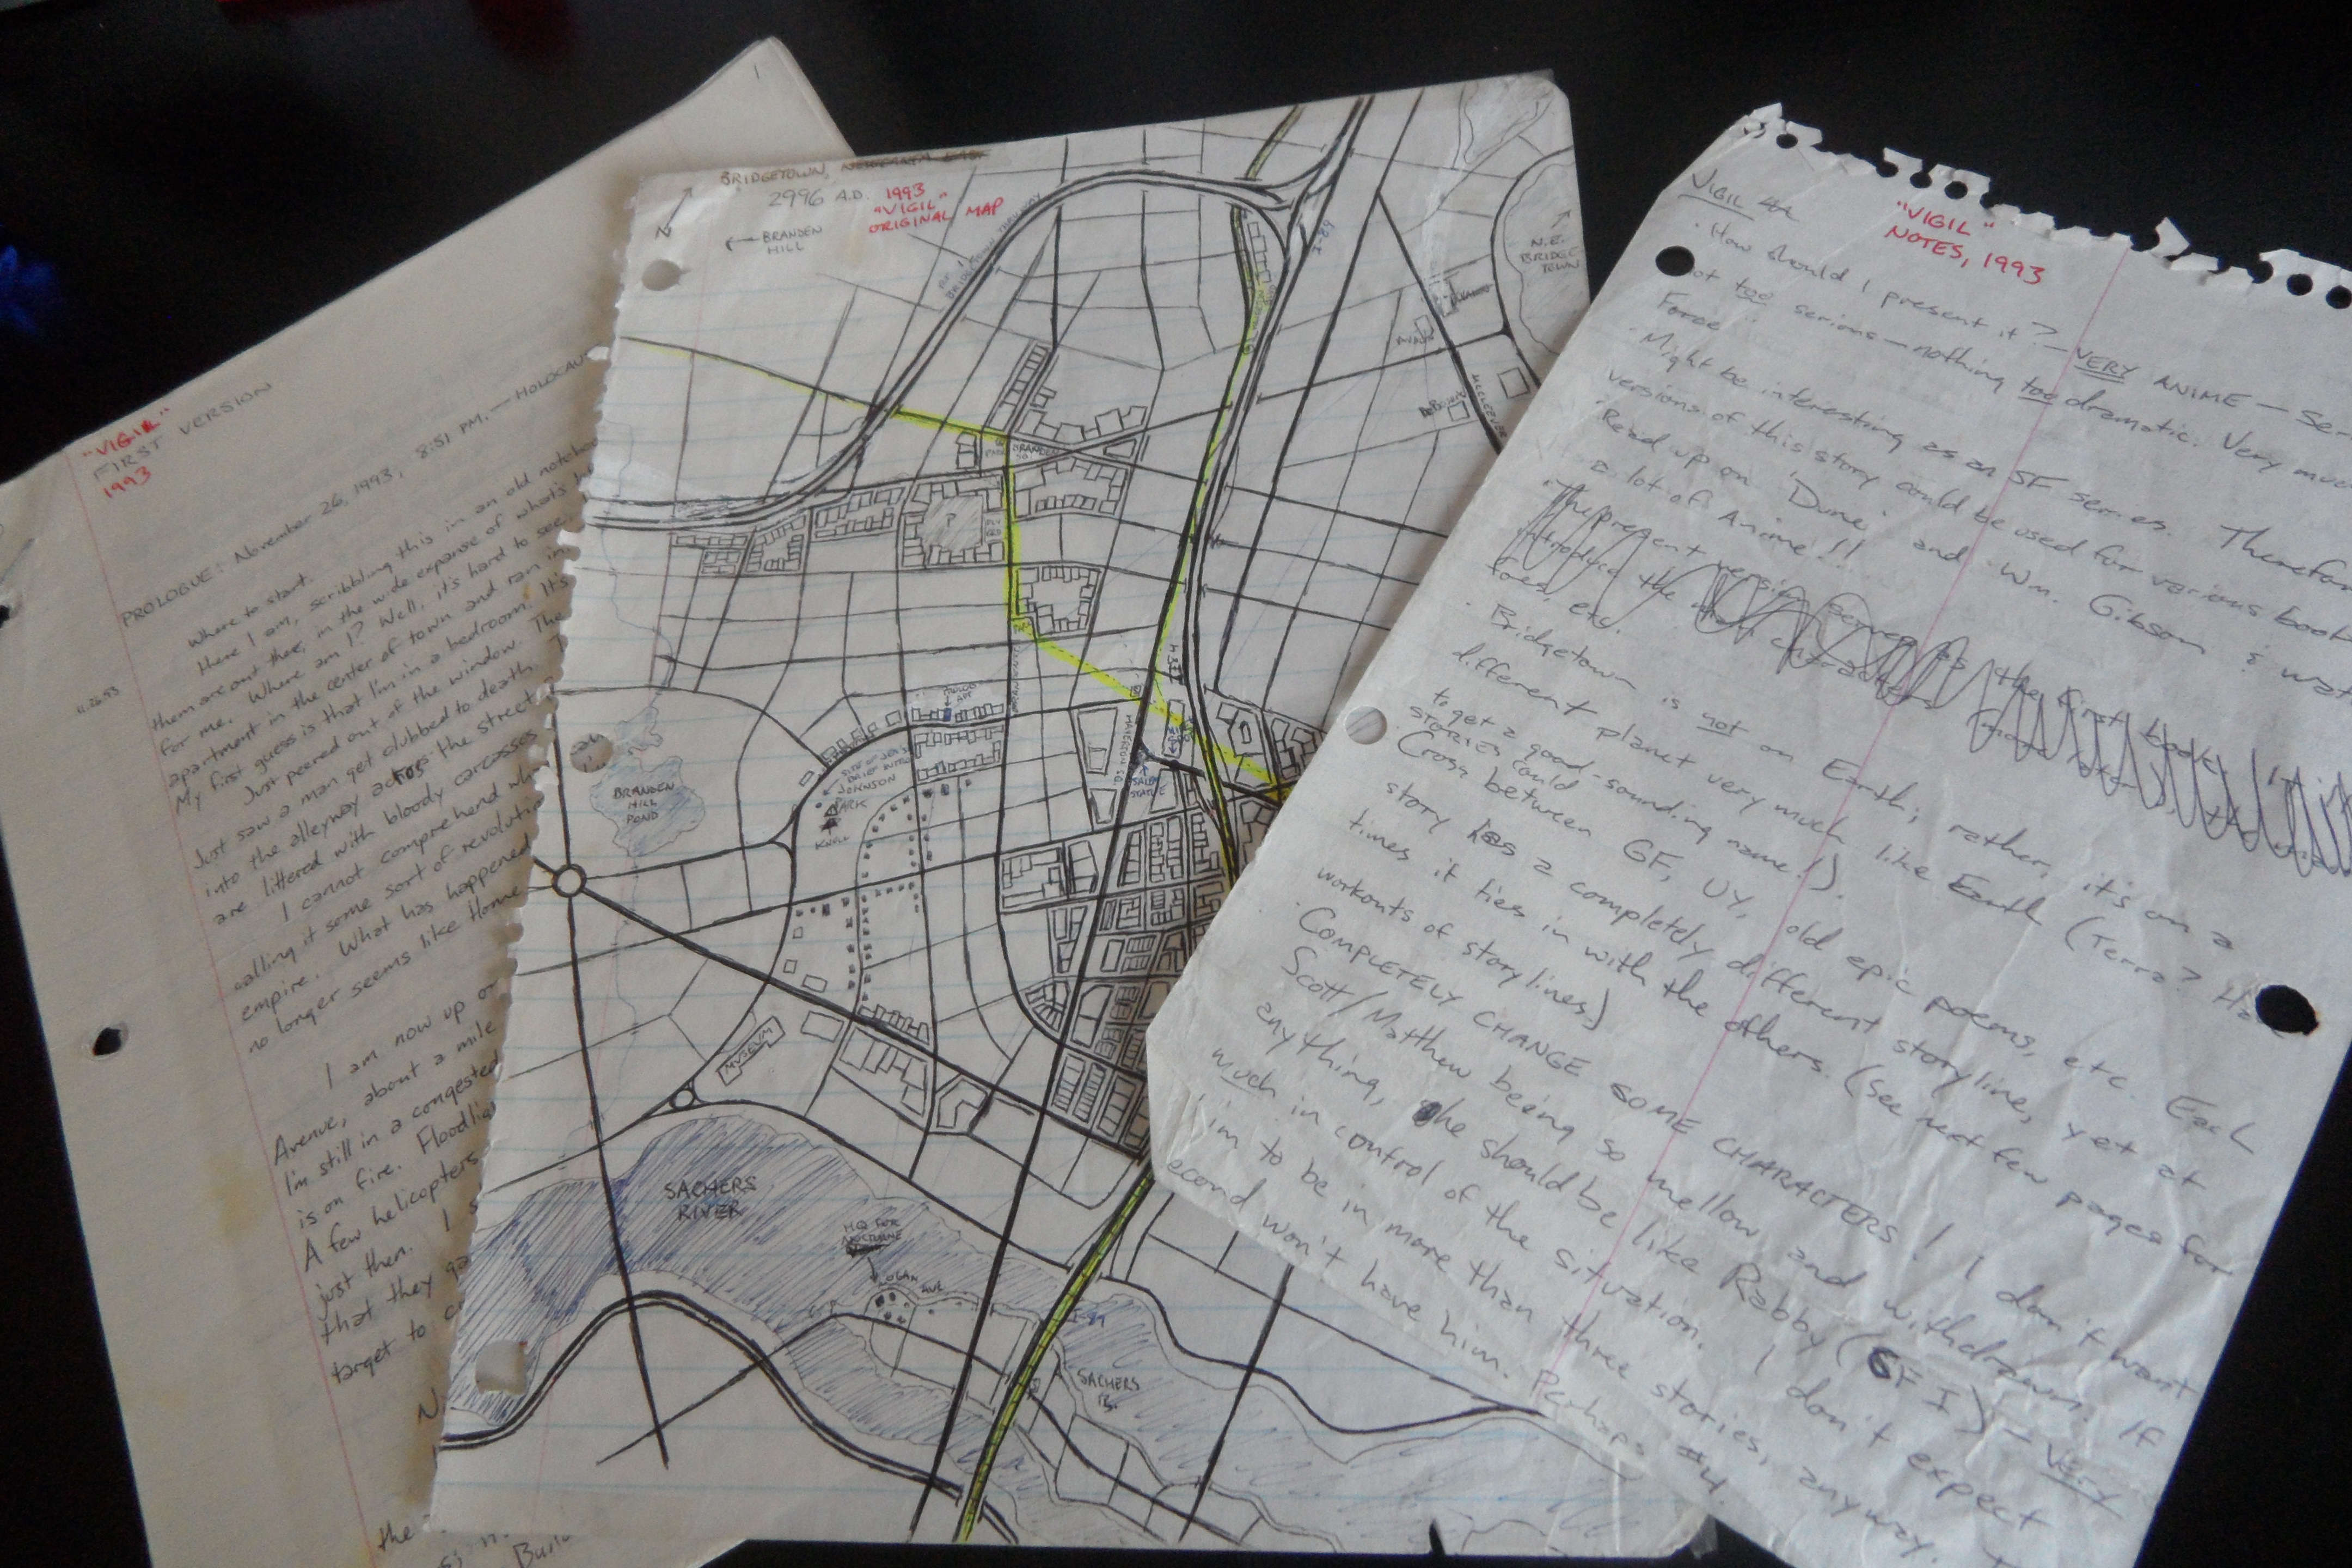 1
"VIGIL"
FIRST VERSION
1993
PROLOGUE: November 26, 1993, 8:51 P.M. — HOLOCAU
Where to start.
Here I am, scribbling this in an old notebo
them are out there, in the wide expanse of what's
for me. Where am I? Well, it's hard to see.
apartment in the center of town and ran in
My first guess is that I'm in a bedroom. It's
Just peered out of the window. The
Just saw a man get clubbed to death.
into the alleyway across the street
are littered with bloody carcasses
I cannot comprehend wh
calling it some sort of revoluti
empire. What has happened
no longer seems like Home
11.26.93
I am now up o
Avenue, about a mile
I'm still in a congested
is on fire. Floodlig
A few helicopters
just then. I s
that they ga
target to c
the
BRIDGETOWN,
2996 A.D. 1993
"VIGIL"
ORIGINAL MAP
N
← BRANDEN
HILL
I-89
N.E.
BRIDGE
TOWN
BRANDEN
SQ.
BRANDEN
HILL
POND
JOHNSON
PARK
KNOLL
SALEM
STATUE
MUSEUM
SACHERS
RIVER
HQ FOR
NOCTURNE
LOGAN
AVE
SACHERS
"VIGIL"
NOTES, 1993
VIGIL
· How should I present it? — VERY ANIME — ser
not too serious — nothing too dramatic. Very much
Force
· Might be interesting as an SF series. Therefor
versions of this story could be used for various book
· Read up on 'Dune' and Wm. Gibson & wat
a lot of Anime!!
· The present version serves as the first book,
introduce the main characters
foes, etc.
· Bridgetown is not on Earth; rather, it's on a
different planet very much like Earth (Terra? Ha
to get a good-sounding name!).
STORIES could
· Cross between GF, UY, old epic poems, etc. Each
story has a completely different storyline, yet at
times it ties in with the others. (see next few pages for
workouts of storylines)
· COMPLETELY CHANGE SOME CHARACTERS! I don't want
Scott/Matthew being so mellow and withdrawn. If
anything, he should be like Rabby (GF I) — VERY
much in control of the situation. I don't expect
him to be in more than three stories, anyway.
econd won't have him. Perhaps #4.